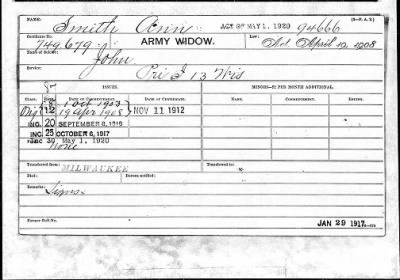 (3—P. A. 2.)
NAME: Smith Ann ACT OF MAY 1, 1920 94666
Certificate No. 749,679 ARMY WIDOW. Law: Act April 19, 1908
Name of Soldier: John
Service: Pri I 13 Wis
ISSUES. MINORS—$2 PER MONTH ADDITIONAL.
CLASS. RATE. DATE OF COMMENCEMENT. DATE OF CERTIFICATE. NAME. COMMENCING. ENDING.
8 1 Oct 1903
Orig 12 19 Apr 1908 NOV 11 1912
INC. 20 SEPTEMBER 8, 1916
INC. 25 OCTOBER 6, 1917
INC 30 May 1, 1920
None
Transferred from: MILWAUKEE Transferred to:
Died: Bureau notified:
Remarks: Signs
Former Roll No. JAN 29 1917